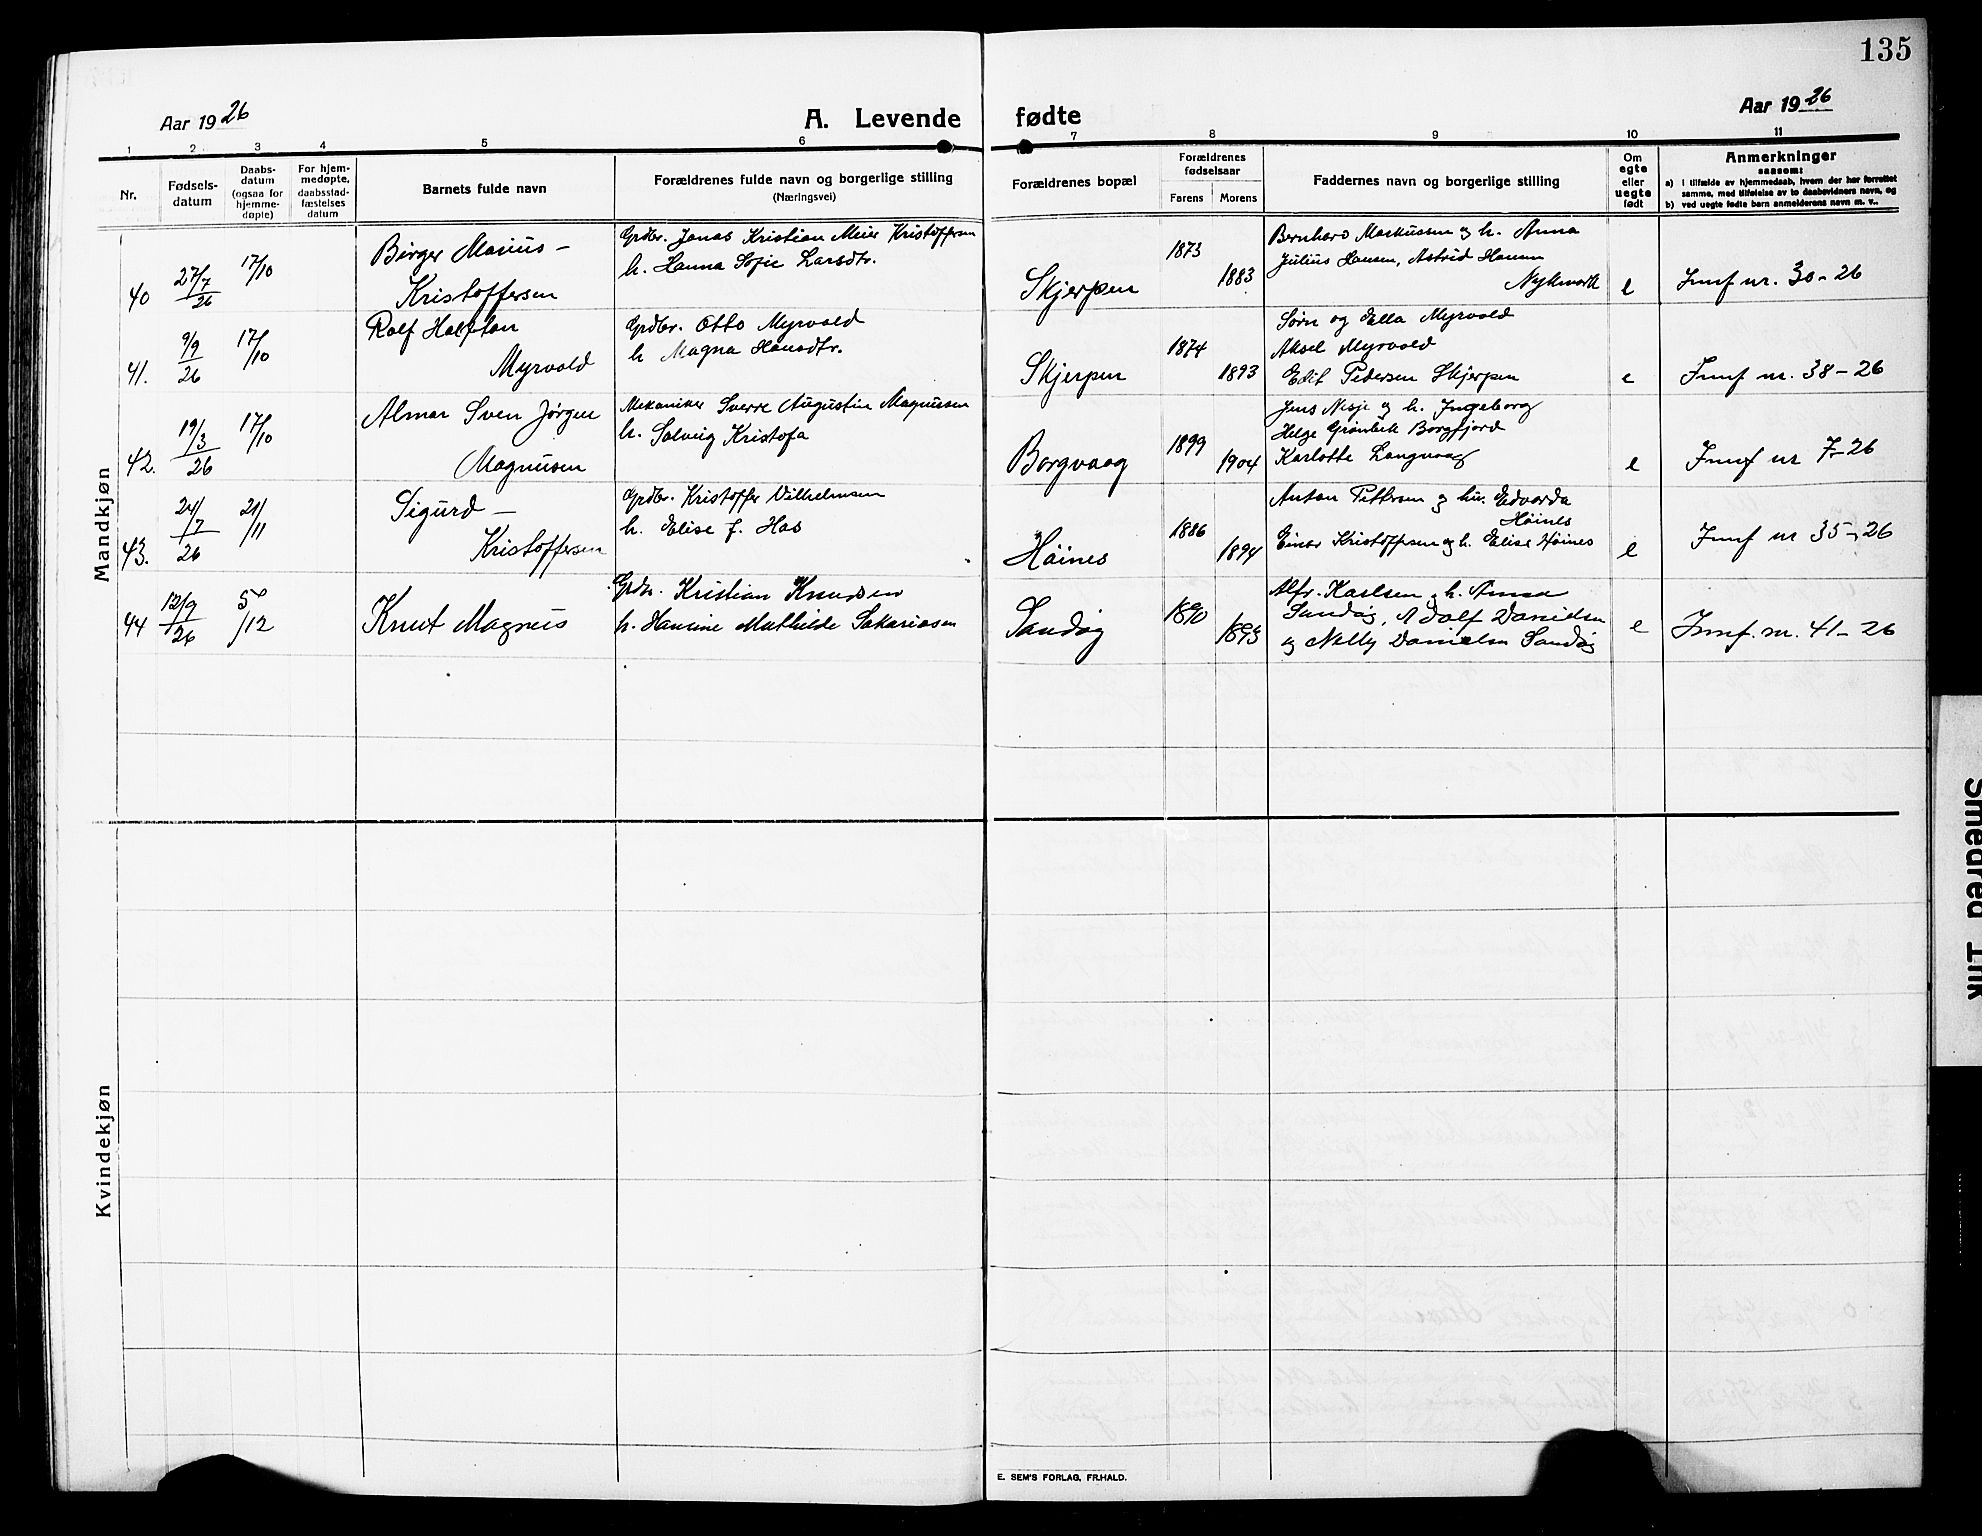 135
Aar 1926
A. Levende fødte
Aar 1926
1 2 3 4 5 6 7 8 9 10 11
Nr.
Fødsels-
datum
Daabs-
datum
(ogsaa for
hjemme-
døpte)
For hjem-
medøpte,
daabsstad-
fæstelses
datum
Barnets fulde navn
Forældrenes fulde navn og borgerlige stilling
(Næringsvei)
Forældrenes bopæl
Forældrenes
fødselsaar
Farens Morens
Faddernes navn og borgerlige stilling
Om
egte
eller
uegte
født
Anmerkninger
saasom:
a) i tilfælde av hjemmedaab, hvem der har forrettet
samme, med tilføielse av to daabsvidners navn, og
b) ved uegte fødte barn anmelderens navn m. v..
Mandkjøn
40 27/7 26 17/10
Birger Marius –
Kristoffersen
Grdbr. Jonas Kristian Meier Kristoffersen
h. Hanna Sofie Larsdtr.
Skjerpen
1873
1883
Bernhard Markussen og h. Anna
Julius Hansen, Astrid Hansen
e
Innf nr. 30-26
41. 9/9 26 17/10
Rolf Halfdan
Myrvold
Grdbr. Otto Myrvold
h Magna Hansdtr.
Skjerpen
1874
1893
Sørn og Ella Myrvold
Aksel Myrvold
Edit Pedersen Skjerpen
e
Innf nr. 38-26
42. 19/3 26 17/10
Almar Sven Jørgen
Magnusen
Mekaniker Sverre Augustin Magnussen
h. Solveig Kristofa
Borgvaag
1899
1904
Jens Nesje og h. Ingeborg
Helge Grønbek Borgfjord
Karlotte Langvaag
e
Innf nr 7-26
43. 24/7 26 21/11
Sigurd –
Kristoffersen
Grdbr. Kristoffer Vilhelmsen
h. Elise f. Has
Höines
1886
1894
Anton Pettersen og hu. Edvarda
Höines
Einar Kristoffersen og h. Elise Höines
e
Innf nr 35-26
44 12/9 26 5/12
Knut Magnus
Grdbr. Kristian Knudsen
h. Hansine Mathilde Sakariasen
Sandøy
1890
1893
Alfr. Karlsen, h. Anna
Sandøy, Adolf Danielsen
og Nelly Danielsen Sandøy
e
Innf. nr. 41-26
Kvindekjøn
E. SEM'S FORLAG, FR.HALD.
Smedred Trk